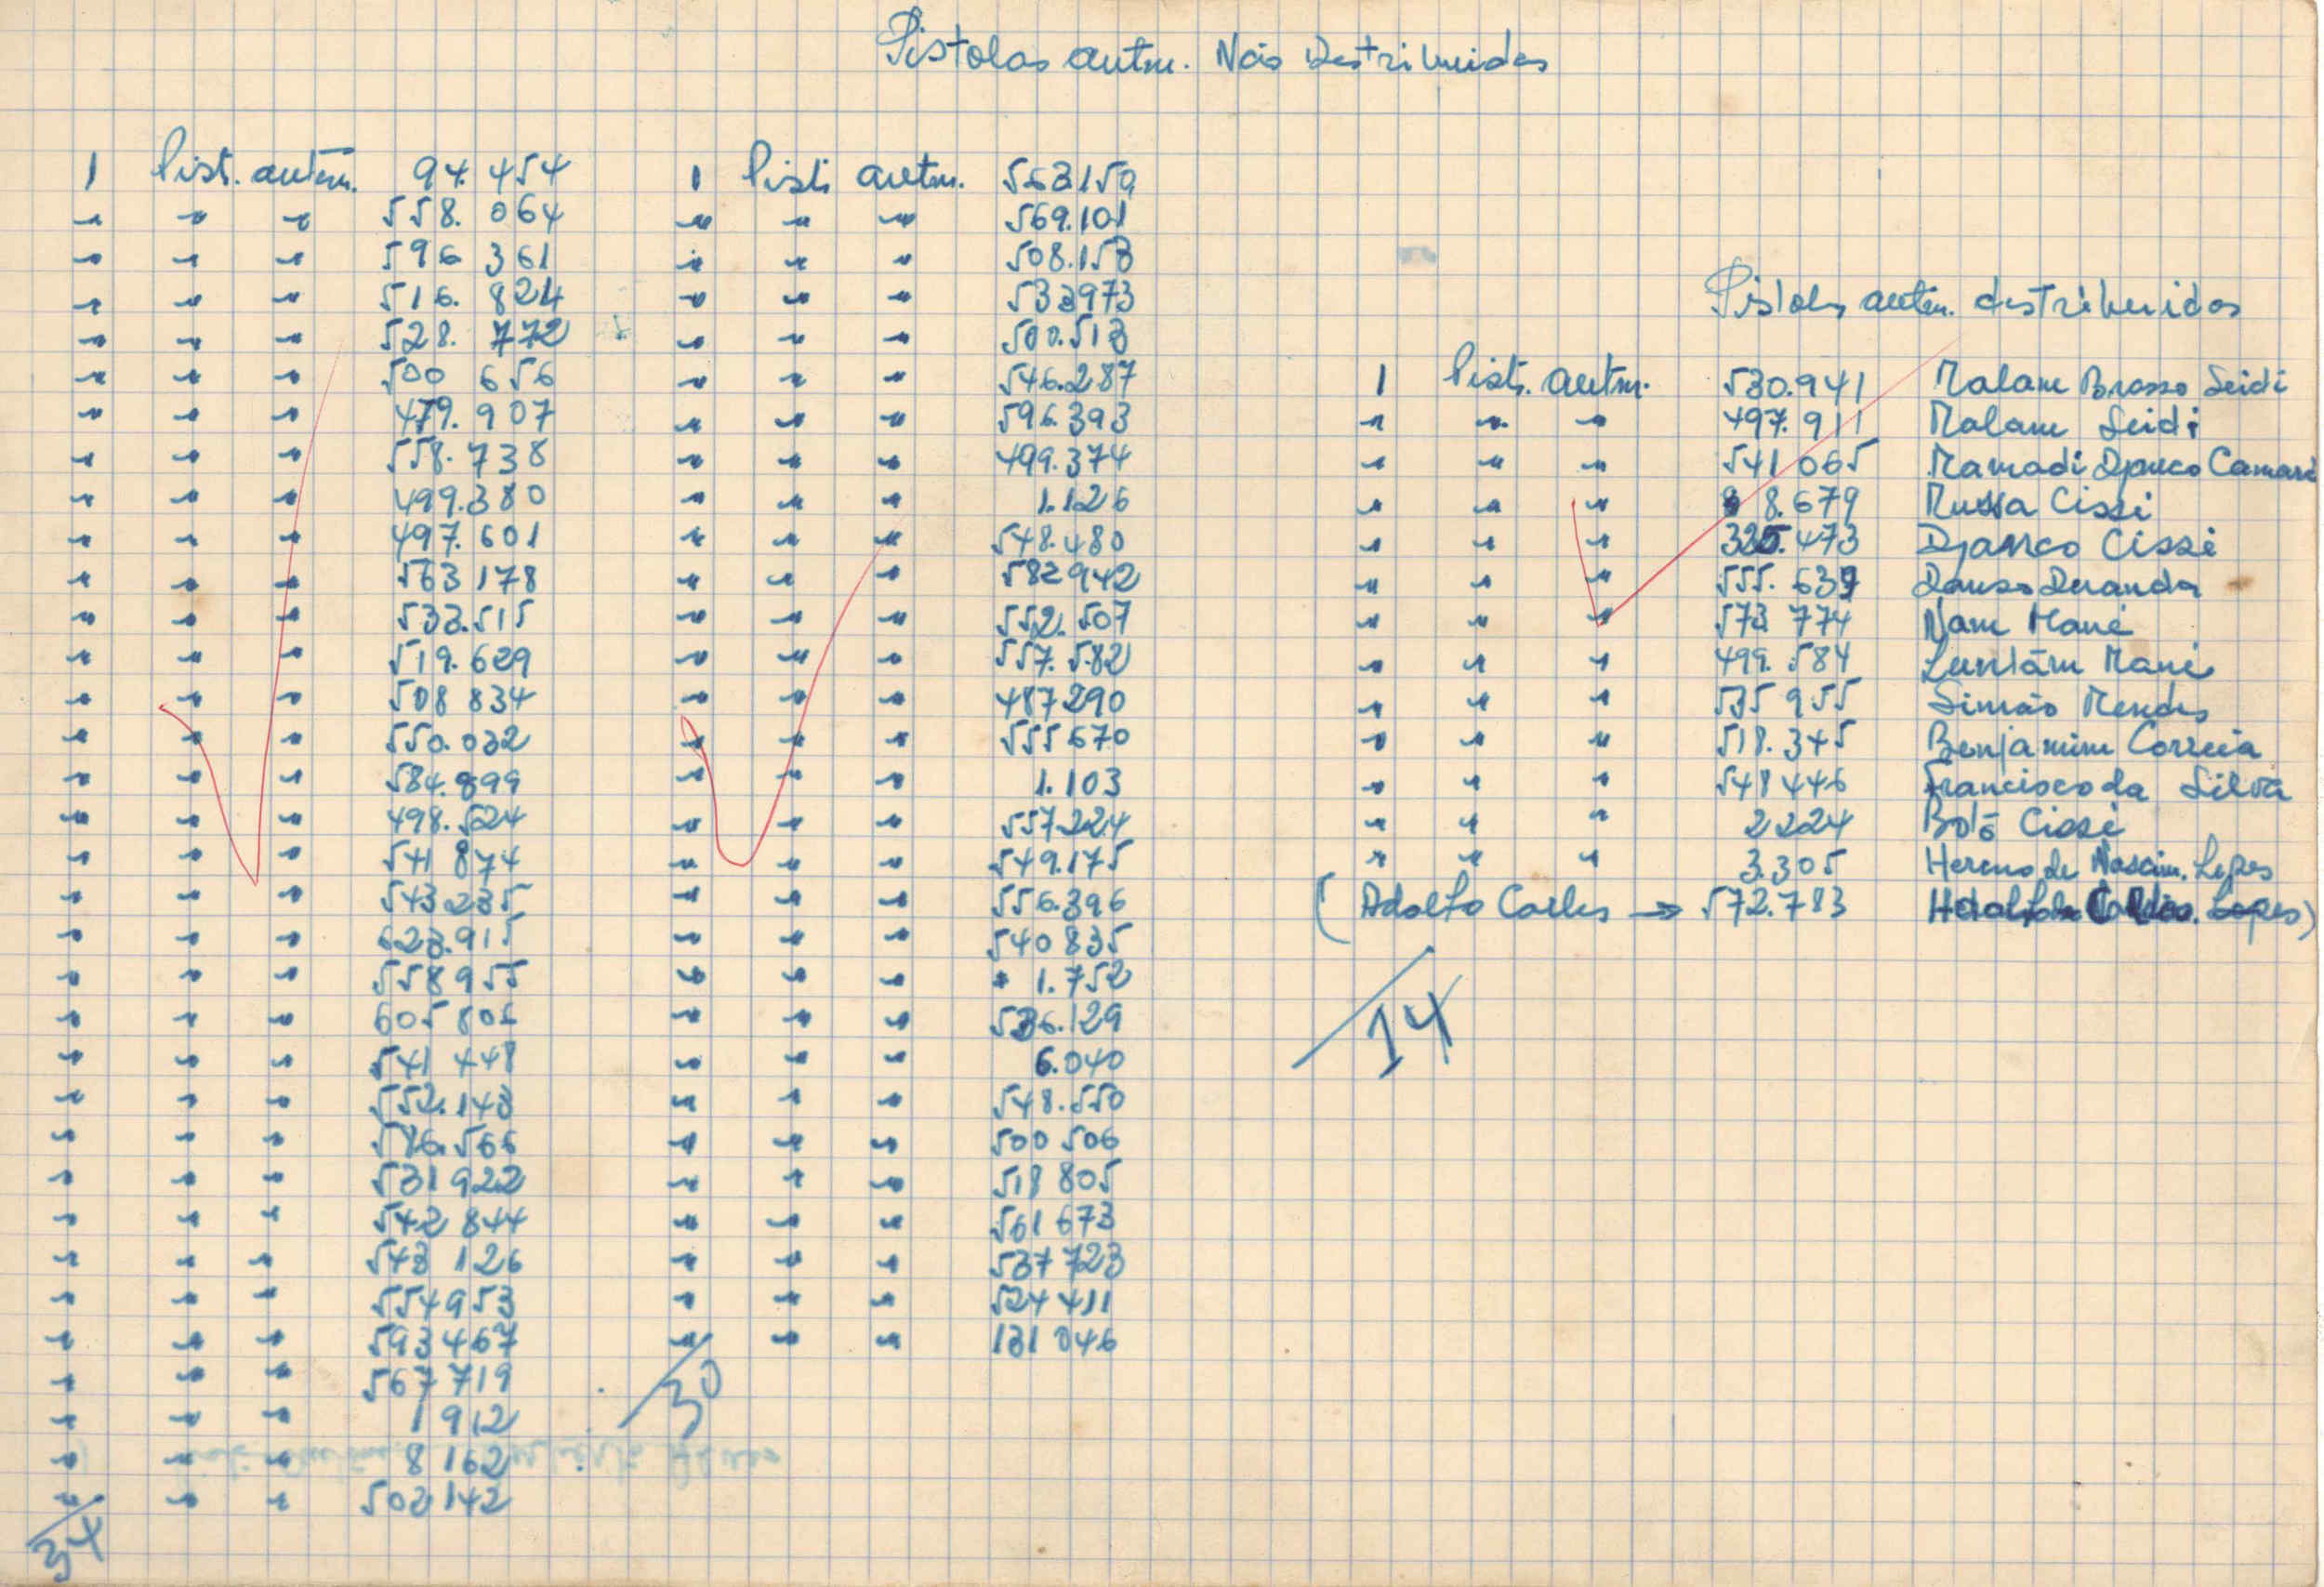 Pistolas autm. Não Destribuidas
1 Pist. autm. 94.454
" " " 558.064
" " " 596 361
" " " 516.824
" " " 528.772
" " " 500 656
" " " 479.907
" " " 558.738
" " " 499.380
" " " 497.601
" " " 563 178
" " " 533.515
" " " 519.629
" " " 508 834
" " " 550.032
" " " 584.899
" " " 498.524
" " " 541 874
" " " 543 235
" " " 623.915
" " " 558 955
" " " 605 806
" " " 541 448
" " " 552.143
" " " 586.566
" " " 531 922
" " " 542 844
" " " 543 126
" " " 554 953
" " " 593 467
" " " 567 719
" " " 1 912
" " " 8 162
" " " 502 142
34
1 Pist. autm. 563150
" " " 569.101
" " " 508.153
" " " 533973
" " " 500.513
" " " 546.287
" " " 596.393
" " " 499.374
" " " 1.126
" " " 548.480
" " " 582942
" " " 552.507
" " " 557.582
" " " 487290
" " " 555670
" " " 1.103
" " " 557224
" " " 549.175
" " " 556.396
" " " 540 835
" " " 1.752
" " " 536.129
" " " 6.040
" " " 548.550
" " " 500 506
" " " 518 805
" " " 561 673
" " " 537 723
" " " 524 411
" " " 131 046
30
Pistolas autm. destribuidas
1 Pist. autm. 530.941 Malam Brasso Seidi
" " " 497.911 Malam Seidi
" " " 541 065 Mamadi Djanco Camará
" " " 8.679 Mussa Cissé
" " " 325.473 Djanco Cissé
" " " 555.639 Danso Deranda
" " " 573 774 Nam Mané
" " " 499.584 Luntám Mané
" " " 535 955 Simão Mendes
" " " 518.345 Benjamim Correia
" " " 548446 Francisco da Silva
" " " 2224 Botô Cissé
" " " 3.305 Hereno de Nascim. Lopes
(Adolfo Carlos → 572.783 Lopes)
14